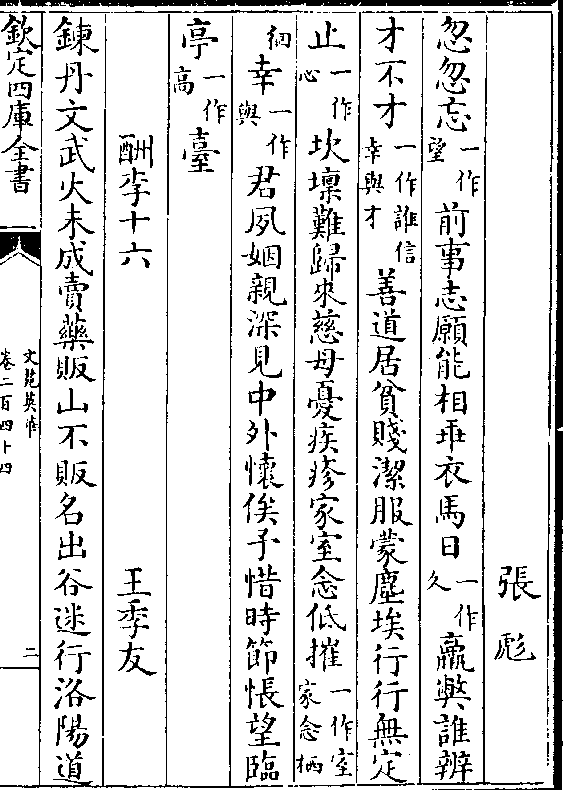 張彪
忽忽忘一作望前事志願能相乖衣馬日一作久羸弊誰辨
才不才一作誰信幸與才善道居貧賤潔服蒙塵埃行行無定
止一作心坎壈難歸來慈母憂疾疹家室念低摧一作室家念栖
徊幸一作與君夙姻親深見中外懷俟予惜時節悵望臨
亭一作高臺
酬李十六
王季友
鍊丹文武火未成賣藥販山不販名出谷迷行洛陽道
欽定四庫全書
文苑英華
卷二百四十四
二